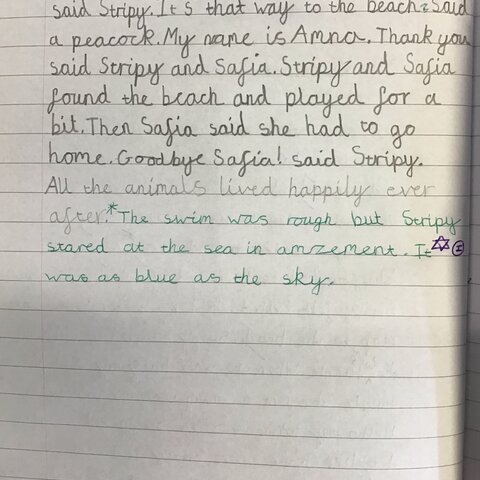 said Stripy. It's that way to the beach. Said
a peacock. My name is Amna. Thank you
said Stripy and Safia. Stripy and Safia
found the beach and played for a
bit. Then Safia said she had to go
home. Goodbye Safia! said Stripy.
All the animals lived happily ever
after.*The swim was rough but Stripy
stared at the sea in amzement. It
was as blue as the sky.